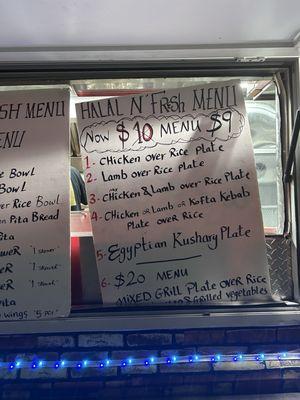 SH MENU
ENU
e Bowl
Bowl
Rice Bowl
en Pita Bread
Pita
wer "1 skewer"
wer "1 skewer"
wer "1 skewer"
Pita
n wings "5 pcs"
HALAL N' FRESH MENU
Now $10 MENU $9
1- CHicken over Rice Plate
2. Lamb over Rice Plate
3. CHicken & Lamb over Rice Plate
4. CHicken or Lamb or Kofta Kebab
Plate over Rice
5. Egyptian Kushary Plate
6. $20 MENU
MIXED GRill Plate over Rice
& Grilled vegetables